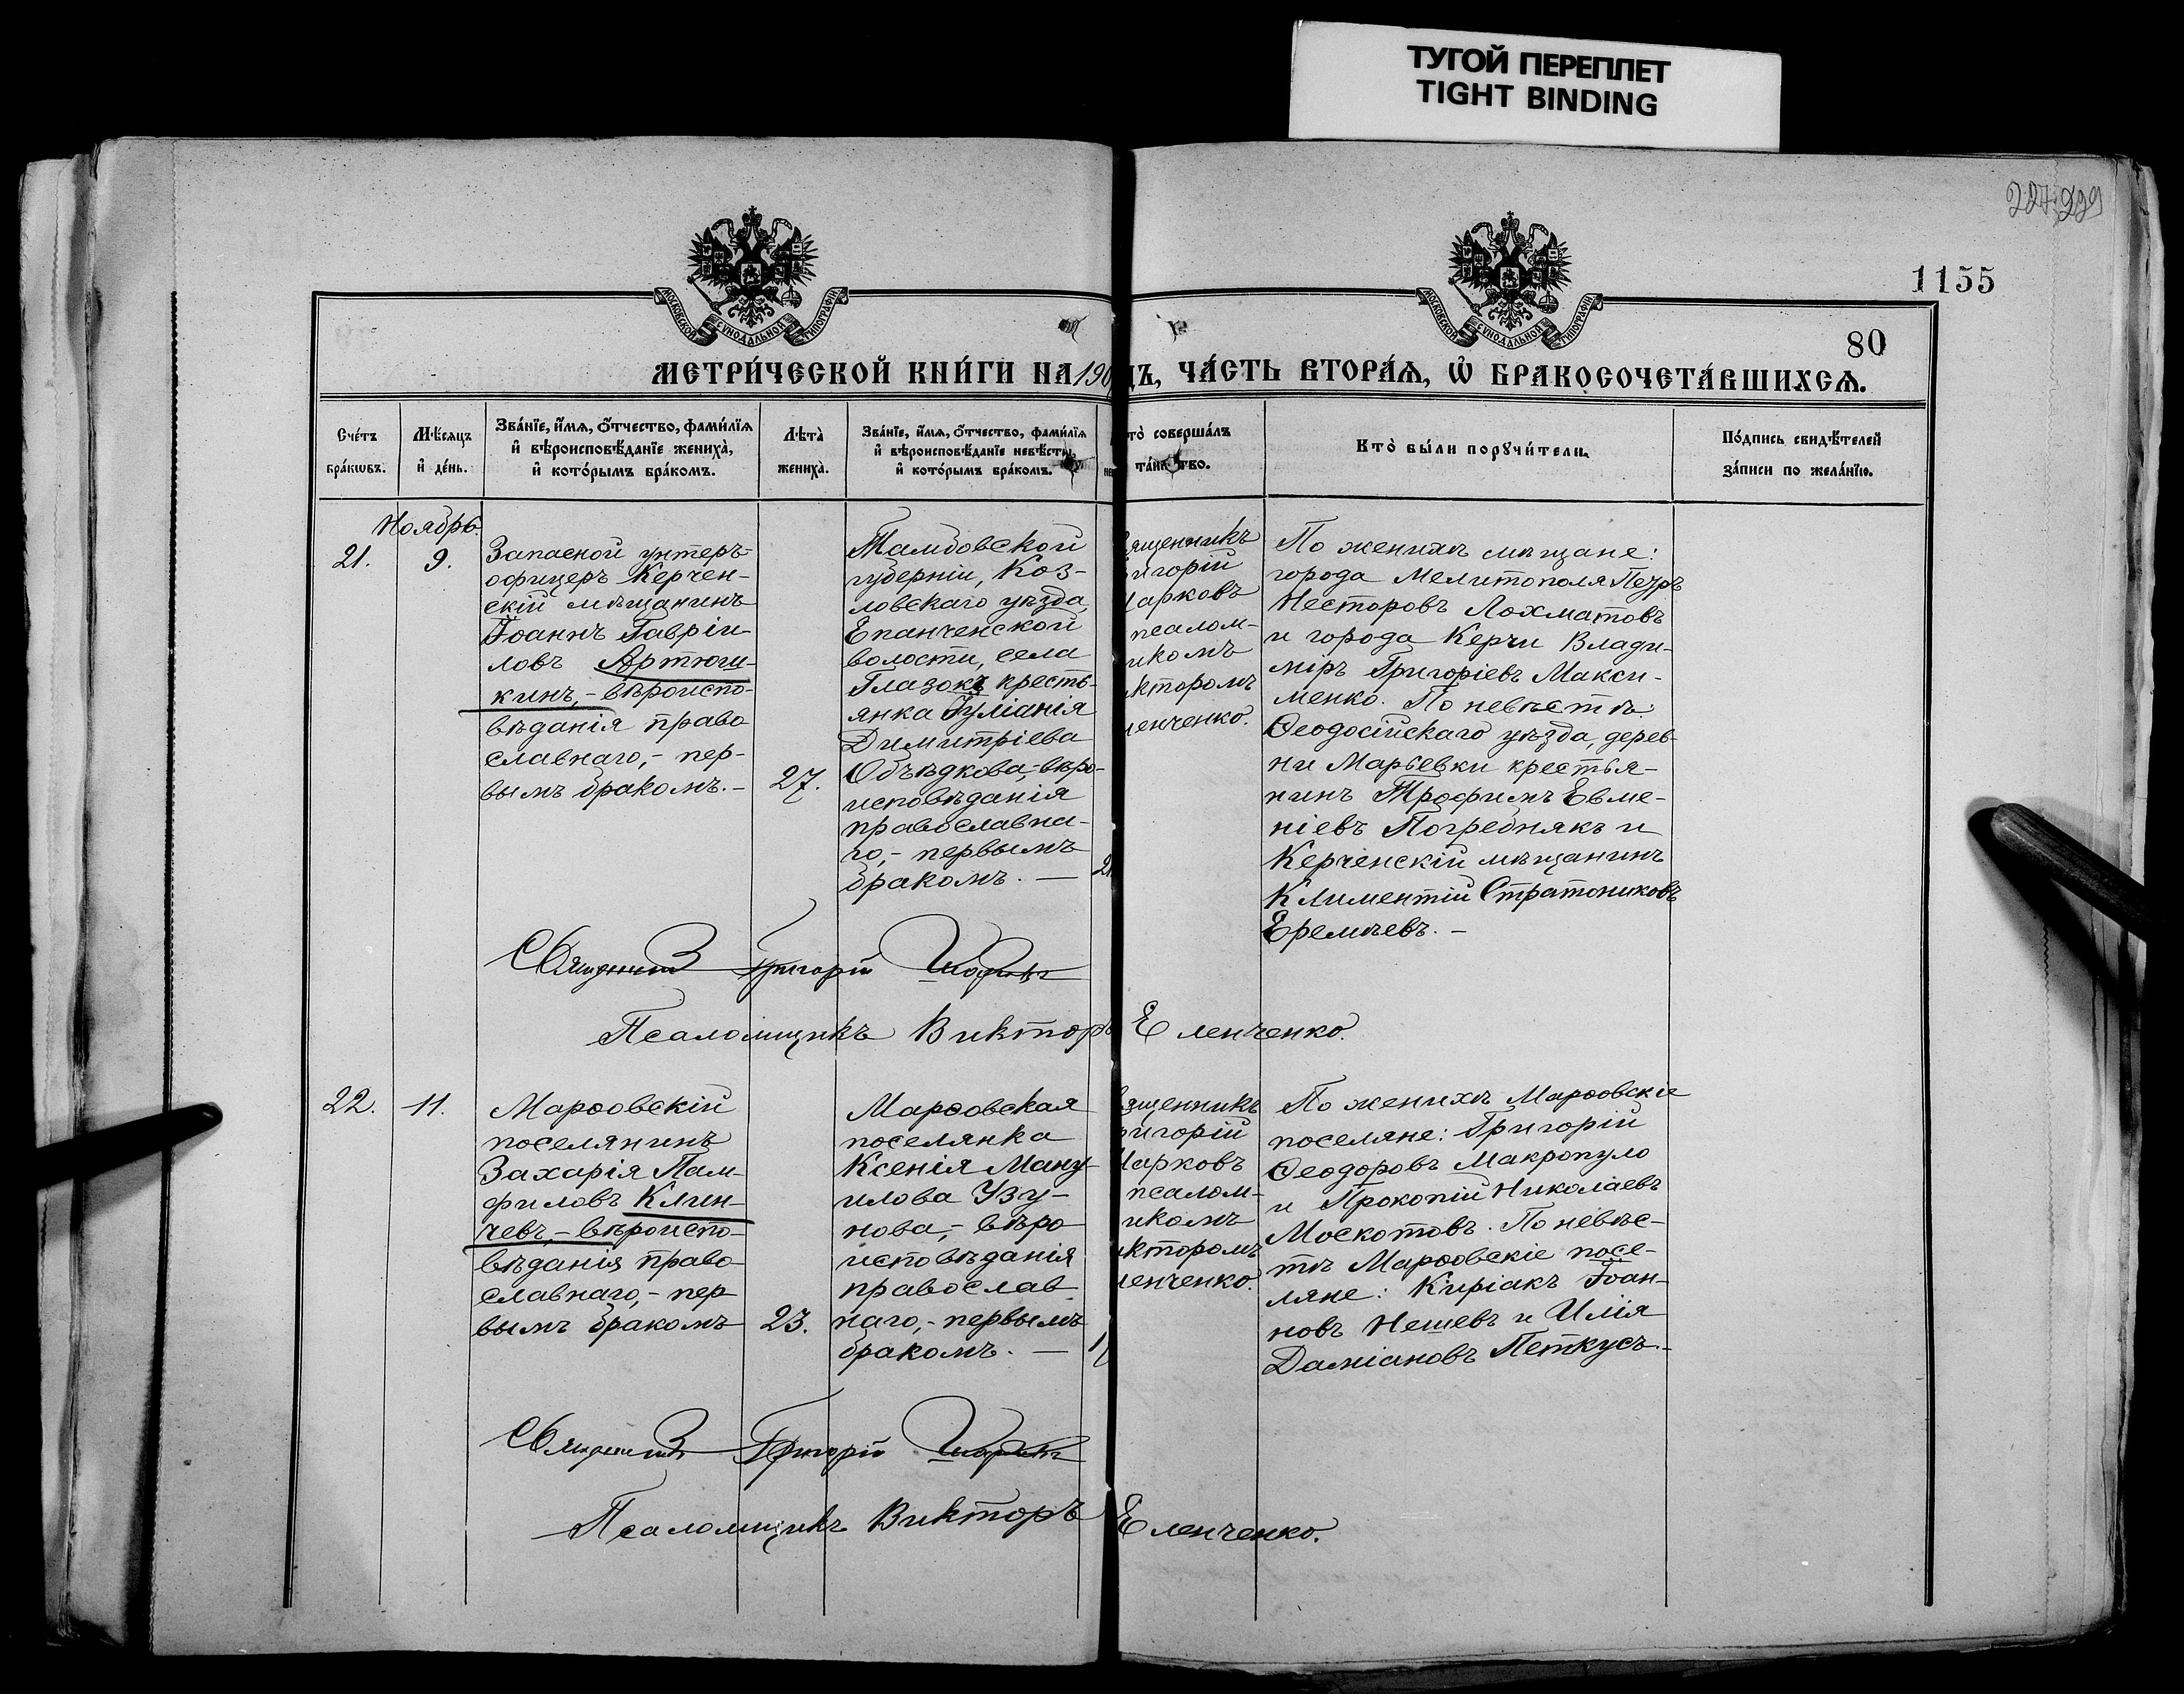 ТУГОЙ ПЕРЕПЛЕТ
TIGHT BINDING
1155
80
МОСКОВСКОЙ СѴНОДАЛЬНОЙ ТИПОГРАФІИ
МОСКОВСКОЙ СѴНОДАЛЬНОЙ ТИПОГРАФІИ
МЕТРИ́ЧЕСКОЙ КНИ́ГИ НА 190
ДЪ, ЧА́СТЬ ВТОРА́Ѧ, Ѡ҆ БРАКОСОЧЕТА́ВШИХСѦ.
Сче́тъ
бра́кѡвъ.
Мѣ́сѧцъ
и҆ де́нь.
Зва́нїе, и҆́мѧ, ѻ҆́тчество, фами́лїѧ
и҆ вѣроисповѣ́данїе жениха̀,
и҆ кото́рымъ бра́комъ.
Лѣта̀
жениха̀.
Зва́нїе, и҆́мѧ, ѻ҆́тчество, фами́лїѧ
и҆ вѣроисповѣ́данїе невѣ́сты,
и҆ кото́рымъ бра́комъ.
то̀ соверша́лъ
та́инство.
Кто̀ бы́ли порꙋчи́тели.
По́дпись свидѣ́телей
за́писи по жела́нїю.
Ноябрь.
21.
9.
Запасной унтеръ-
офицеръ Керчен-
скій мѣщанинъ
Іоаннъ Гавріи-
ловъ Артюш-
кинъ,- вѣроиспо-
вѣданія право
славнаго,- пер-
вымъ бракомъ.-
27.
Тамбовской
губерніи, Коз-
ловскаго уѣзда,
Епанченской
волости, села
Глазокъ кресть-
янка Іуліанія
Димитріева
Объѣдкова,-вѣро-
исповѣданія
православна-
го,- первымъ
бракомъ. —
2
ященникъ
игорій
арковъ
псалом-
икомъ
кторомъ
ленченко.
По женихѣ мѣщане:
города Мелитополя Петръ
Несторовъ Лохматовъ
и города Керчи Влади-
міръ Григоріевъ Макси-
менко. По невѣстѣ:
Ѳеодосійскаго уѣзда, дерев-
ни Марьевки крестья-
нинъ Трофимъ Евме-
ніевъ Погребнякъ и
Керченскій мѣщанинъ
Климентій Стратониковъ
Еремѣевъ. -
Священникъ Григорій Шарковъ
Псаломщикъ Викторъ Еленченко.
22.
11.
Марѳовскій
поселянинъ
Захарія Пам-
филовъ Клин-
чевъ,-вѣроиспо-
вѣданія право
славнаго,- пер
вымъ бракомъ
23.
Марѳовская
поселянка
Ксенія Ману-
илова Узу-
нова,- вѣро
исповѣданія
православ
наго,- первымъ
бракомъ. —
1
ященникъ
ригорій
арковъ
псалом-
икомъ
кторомъ
ленченко.
По женихѣ Марѳовскіе
поселяне: Григорій
Ѳеодоровъ Макропуло
и Прокопій Николаевъ
Москотовъ. По невѣс-
тѣ Марѳовскіе посе-
ляне: Киріакъ Іоан-
новъ Нешевъ и Илія
Даміановъ Петкусъ.-
Священникъ Григорій Шарковъ
Псаломщикъ Викторъ Еленченко.